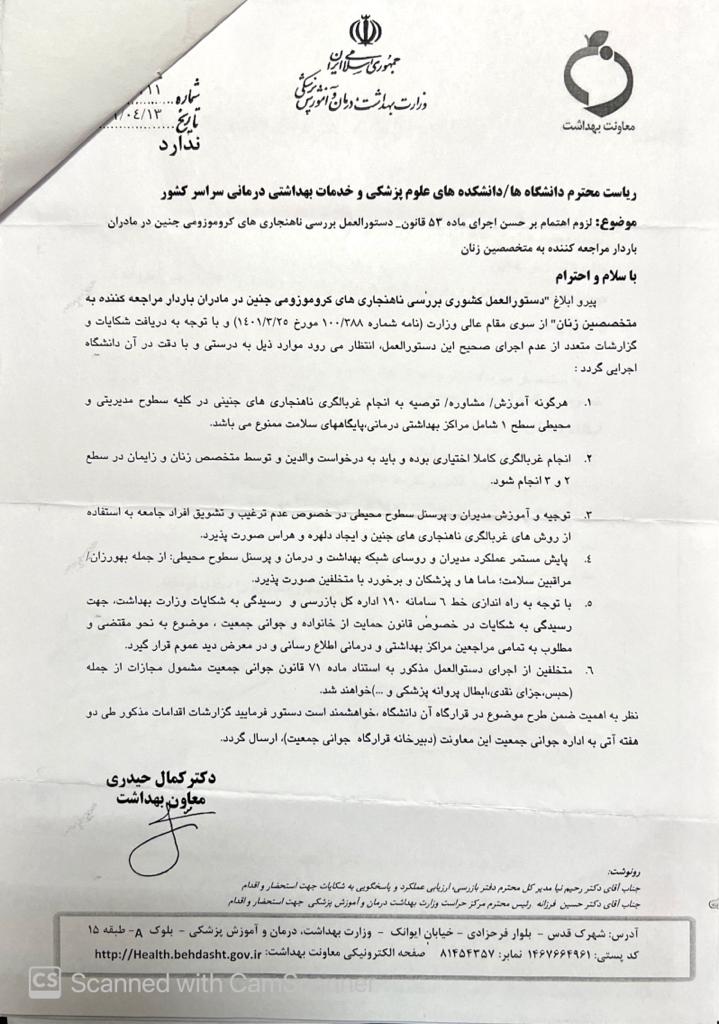 جمهوری اسلامی ایران
وزارت بهداشت، درمان و آموزش پزشکی
معاونت بهداشت
شماره ۱۱
تاریخ ۱/۰۴/۱۳
ندارد
ریاست محترم دانشگاه ها/دانشکده های علوم پزشکی و خدمات بهداشتی درمانی سراسر کشور
موضوع: لزوم اهتمام بر حسن اجرای ماده ۵۳ قانون_ دستورالعمل بررسی ناهنجاری های کروموزومی جنین در مادران
باردار مراجعه کننده به متخصصین زنان
با سلام و احترام
پیرو ابلاغ "دستورالعمل کشوری بررسی ناهنجاری های کروموزومی جنین در مادران باردار مراجعه کننده به
متخصصین زنان" از سوی مقام عالی وزارت (نامه شماره ۱۰۰/۳۸۸ مورخ ۱۴۰۱/۳/۲۵) و با توجه به دریافت شکایات و
گزارشات متعدد از عدم اجرای صحیح این دستورالعمل، انتظار می رود موارد ذیل به درستی و با دقت در آن دانشگاه
اجرایی گردد :
۱. هرگونه آموزش/ مشاوره/ توصیه به انجام غربالگری ناهنجاری های جنینی در کلیه سطوح مدیریتی و
محیطی سطح ۱ شامل مراکز بهداشتی درمانی،پایگاههای سلامت ممنوع می باشد.
۲. انجام غربالگری کاملا اختیاری بوده و باید به درخواست والدین و توسط متخصص زنان و زایمان در سطح
۲ و ۳ انجام شود.
۳. توجیه و آموزش مدیران و پرسنل سطوح محیطی در خصوص عدم ترغیب و تشویق افراد جامعه به استفاده
از روش های غربالگری ناهنجاری های جنین و ایجاد دلهره و هراس صورت پذیرد.
۴. پایش مستمر عملکرد مدیران و روسای شبکه بهداشت و درمان و پرسنل سطوح محیطی: از جمله بهورزان/
مراقبین سلامت؛ ماما ها و پزشکان و برخورد با متخلفین صورت پذیرد.
۵. با توجه به راه اندازی خط ۶ سامانه ۱۹۰ اداره کل بازرسی و رسیدگی به شکایات وزارت بهداشت، جهت
رسیدگی به شکایات در خصوص قانون حمایت از خانواده و جوانی جمعیت ، موضوع به نحو مقتضی و
مطلوب به تمامی مراجعین مراکز بهداشتی و درمانی اطلاع رسانی و در معرض دید عموم قرار گیرد.
۶. متخلفین از اجرای دستوالعمل مذکور به استناد ماده ۷۱ قانون جوانی جمعیت مشمول مجازات از جمله
(حبس،جزای نقدی،ابطال پروانه پزشکی و ...)خواهند شد.
نظر به اهمیت ضمن طرح موضوع در قرارگاه آن دانشگاه ،خواهشمند است دستور فرمایید گزارشات اقدامات مذکور طی دو
هفته آتی به اداره جوانی جمعیت این معاونت (دبیرخانه قرارگاه جوانی جمعیت)، ارسال گردد.
دکتر کمال حیدری
معاون بهداشت
رونوشت:
جناب آقای دکتر رحیم نیا مدیر کل محترم دفتر بازرسی، ارزیابی عملکرد و پاسخگویی به شکایات جهت استحضار و اقدام
جناب آقای دکتر حسین فرزانه رئیس محترم مرکز حراست وزارت بهداشت درمان و آموزش پزشکی جهت استحضار و اقدام
آدرس: شهرک قدس - بلوار فرحزادی - خیابان ایوانک - وزارت بهداشت، درمان و آموزش پزشکی - بلوک A- طبقه ۱۵
کد پستی: ۱۴۶۷۶۶۴۹۶۱ نمابر: ۸۱۴۵۴۳۵۷ صفحه الکترونیکی معاونت بهداشت: http://Health.behdasht.gov.ir
CS Scanned with CamScanner